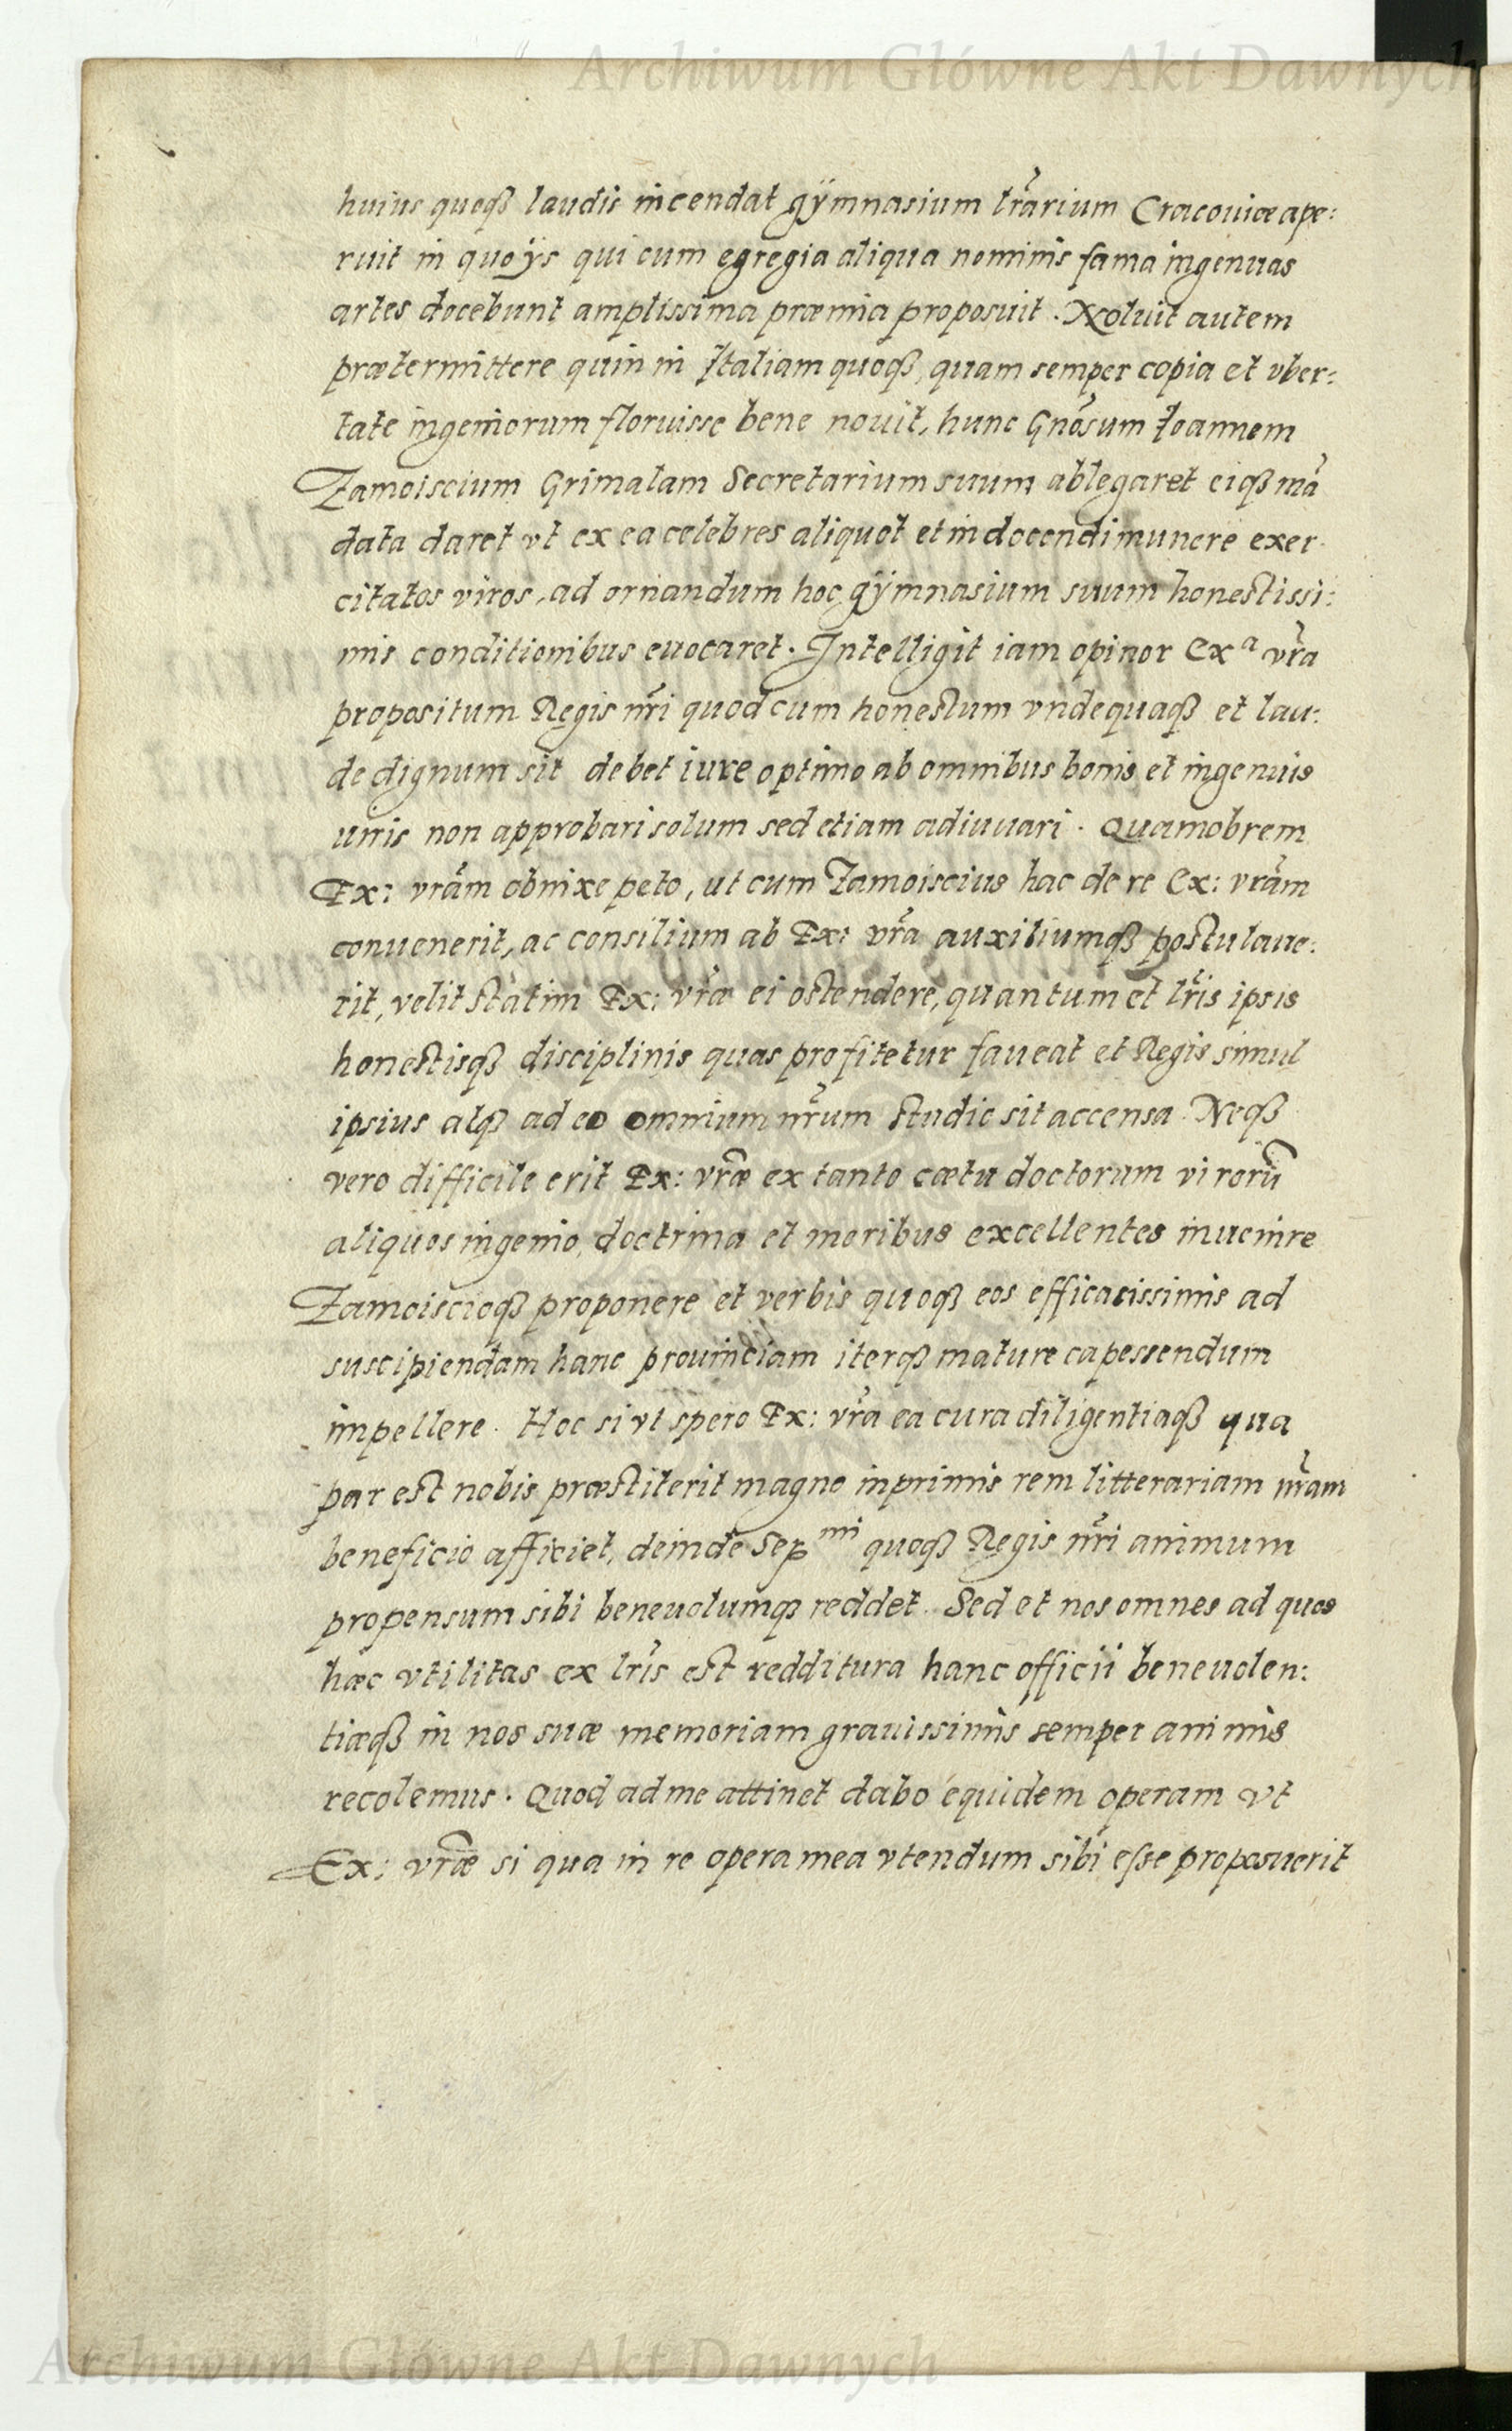 Archiwum Główne Akt Dawnych
huius quoqß laudis incendat gÿmnasium lr̃arium Cracouiæ ape:
ruit in quo ÿs qui cum egregia aliqua nominis fama ingenuas
artes docebunt amplissima præmia proposuit. Noluit autem
prætermittere quin in Italiam quoqß, quam semper copia et vber:
tate ingeniorum floruisse bene nouit, hunc Gnõsum Ioannem
Zamoiscium Grimalam Secretarium suum ablegaret eiqß mã
data daret vt ex ea celebres aliquot et in docendi munere exer
citatos viros, ad ornandum hoc gÿmnasium suum honestissi:
mis conditionibus euocaret. Intelligit iam opinor Exª vr̃a
propositum Regis nr̃i quod cum honestum vndequaqß et lau:
de dignum sit debet iure optimo ab omnibus bonis et ingenuis
uiris non approbari solum sed etiam adiuuari. Quamobrem
Ex: vr̃am obnixe peto, ut cum Zamoiscius hac de re Ex: vr̃am
conuenerit, ac consilium ab Ex: vr̃a auxiliumqß postulaue:
rit, velit statim Ex: vr̃a ei ostendere, quantum et lr̃is ipsis
honestisqß disciplinis quas profitetur faueat et Regis simul
ipsius atqß adeo omnium nr̃um studio sit accensa. Neqß
vero difficile erit Ex: vr̃æ ex tanto cœtu doctorum virorũ
aliquos ingenio, doctrina et moribus excellentes inuenire
Zamoiscioqß proponere et verbis quoqß eos efficacissimis ad
suscipiendam hanc prouinciam iterqß mature capessendum
impellere. Hoc si vt spero Ex: vr̃a ea cura diligentiaqß qua
par est nobis præstiterit magno inprimis rem litterariam nr̃am
beneficio afficiet, deinde Serᵐⁱ quoqß Regis nr̃i animum
propensum sibi beneuolumqß reddet. Sed et nos omnes ad quos
hæc vtilitas ex lr̃is est redditura hanc officii beneuolen:
tiæqß in nos suæ memoriam grauissimis semper animis
recolemus. Quod ad me attinet dabo equidem operam vt
Ex: vr̃æ si qua in re opera mea vtendum sibi esse proposuerit
Archiwum Główne Akt Dawnych